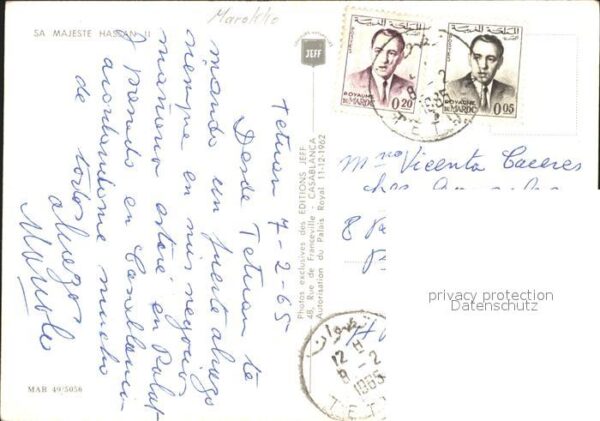 Marokko
SA MAJESTE HASSAN II
Tetuan 7-2-65
Desde Tetuan te
mando un fuerte abrazo
siempre en mis negocios
mañana estaré en Rabat
y pasado en Casablanca
acordandome mucho
de todos
abrazos
Manolo
MAB 49/5056
JEFF
Photos exclusives des EDITIONS JEFF
48, Rue de Franceville - CASABLANCA
Autorisation du Palais Royal 11-12-1962
المملكة المغربية
ROYAUME
DU MAROC
0.20
المملكة المغربية
ROYAUME
DU MAROC
0.05
Vicenta Caceres
privacy protection
Datenschutz
تطوان
12
8-2
1965